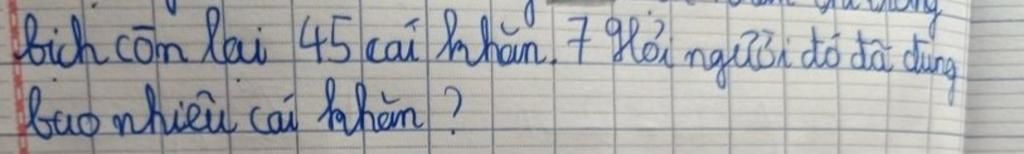 bich còn lại 45 cái khăn. 7 Hỏi người đó đã dùng
bao nhiêu cái khăn ?